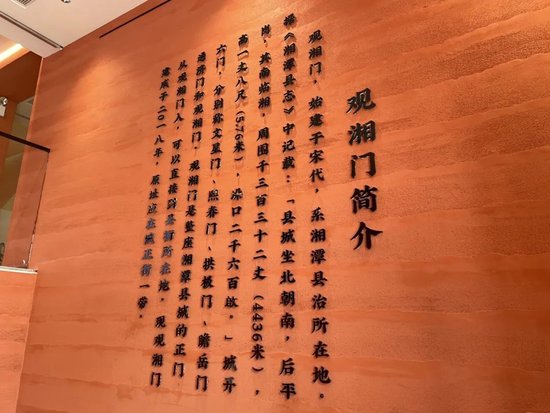 观湘门简介
观湘门，始建于宋代，系湘潭县治所在地。
据《湘潭县志》中记载：“县城坐北朝南，后平
岗，其南临湘，周围千三百三十二丈（4436米），
高一丈八尺（576米），口二千六百。”城开
六门，分别称文星门、熙春门、拱极门、瞻岳门
通济门和观湘门，观湘门是整座湘潭县城的正门
从观湘门入，可以直接到县衙所在地，现观湘门
建成于二〇一八年，原址应在城正街一带。